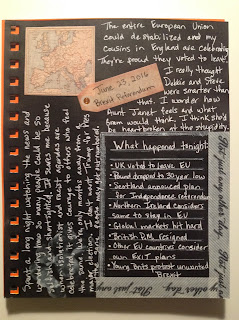 The entire European Union
could destabilized and my
cousins in England are celebrating
They're proud they voted to leave.
I really thought
Debbie and Steve
were smarter than
that. I wonder how
Aunt Janet feels and what
Gran would think. I think she'd
be heartbroken at the stupidity.
June 23 2016
Brexit Referendum
What happened tonight:
• UK voted to leave EU
• Pound dropped to 30 year low
• Scotland announced plan
for Independence referendum
• Northern Ireland considers
same to stay in EU
• Global markets hit hard
• British P.M. resigned
• Other EU countries consider
own EXIT plans
• Young Brits protest unwanted
Brexit
Spent a long night watching the news and
wondering how so many people could be so
selfish and shortsighted. It scares me because
when isolationist and racist agendas are
celebrated, it gives courage to others who feel
the same. We're only months away from a
major election. I don't want a Trump
America may get
Not just any other day.
Not just any
other day. Not just any